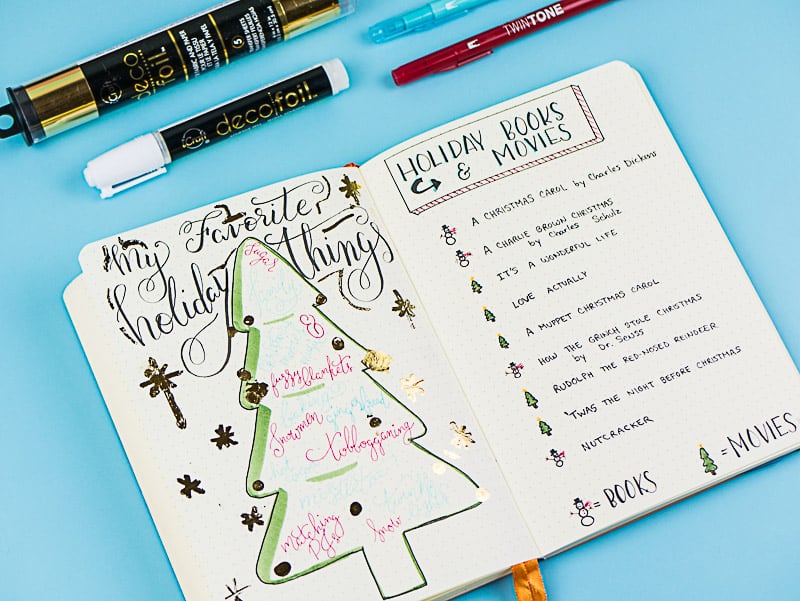 deco
foil
TRANSFER SHEETS
iCraft
deco|foil
TWINTONE
My Favorite
holiday things
&
fuzzy blankets
Snowmen
gingerbread
Tobbogganing
twinkle
Matching
PJs
Snow
HOLIDAY BOOKS
& MOVIES
A CHRISTMAS CAROL by Charles Dickens
A CHARLIE BROWN CHRISTMAS
by Charles Schulz
IT'S A WONDERFUL LIFE
LOVE ACTUALLY
A MUPPET CHRISTMAS CAROL
HOW THE GRINCH STOLE CHRISTMAS
by Dr. Seuss
RUDOLPH THE RED-NOSED REINDEER
'TWAS THE NIGHT BEFORE CHRISTMAS
NUTCRACKER
= BOOKS
= MOVIES